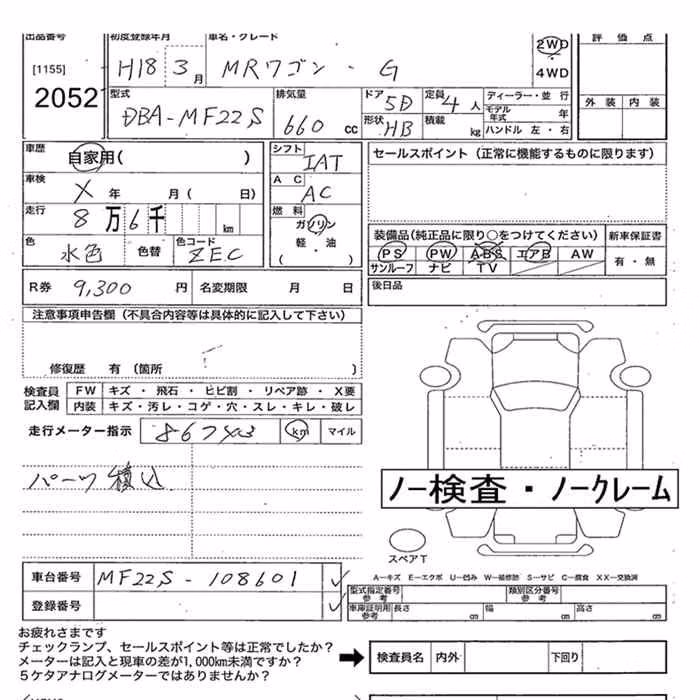 出品番号 初度登録年月 車名・グレード 評価点
[1155] H18 3月 MRワゴン - G 2WD
2052 4WD 外装 内装
型式 排気量 ドア 5D 定員 4人 ディーラー・並行
DBA-MF22S 660cc 形状 HB 積載 kg モデル年式 年
ハンドル 左・右
車歴 自家用( ) シフト IAT セールスポイント（正常に機能するものに限ります）
車検 X 年 月( 日) AC AC
走行 8万6千 km 燃料 ガソリン
軽・油
( )
色 水色 色替 色コード ZEC
装備品(純正品に限り○をつけてください) 新車保証書
PS PW ABS エアB AW 有・無
サンルーフ ナビ TV
R券 9,300円 名変期限 月 日 後日品
注意事項申告欄（不具合内容等は具体的に記入して下さい）
修復歴 有（箇所 ）
検査員記入欄 FW キズ・飛石・ヒビ割・リペア跡・X要
内装 キズ・汚レ・コゲ・穴・スレ・キレ・破レ
走行メーター指示 86743 km マイル
パーツ積込
ノー検査・ノークレーム
スペアT
車台番号 MF22S-108601
登録番号
A―キズ E―エクボ U―凹み W―補修跡 S―サビ C―腐食 XX―交換済
型式指定番号 参考 類別区分番号 参考
車庫証明用 参考 長さ cm 幅 cm 高さ cm
お疲れさまです
チェックランプ、セールスポイント等は正常でしたか？
メーターは記入と現車の差が1,000km未満ですか？
５ケタアナログメーターではありませんか？
検査員名 内外 下回り